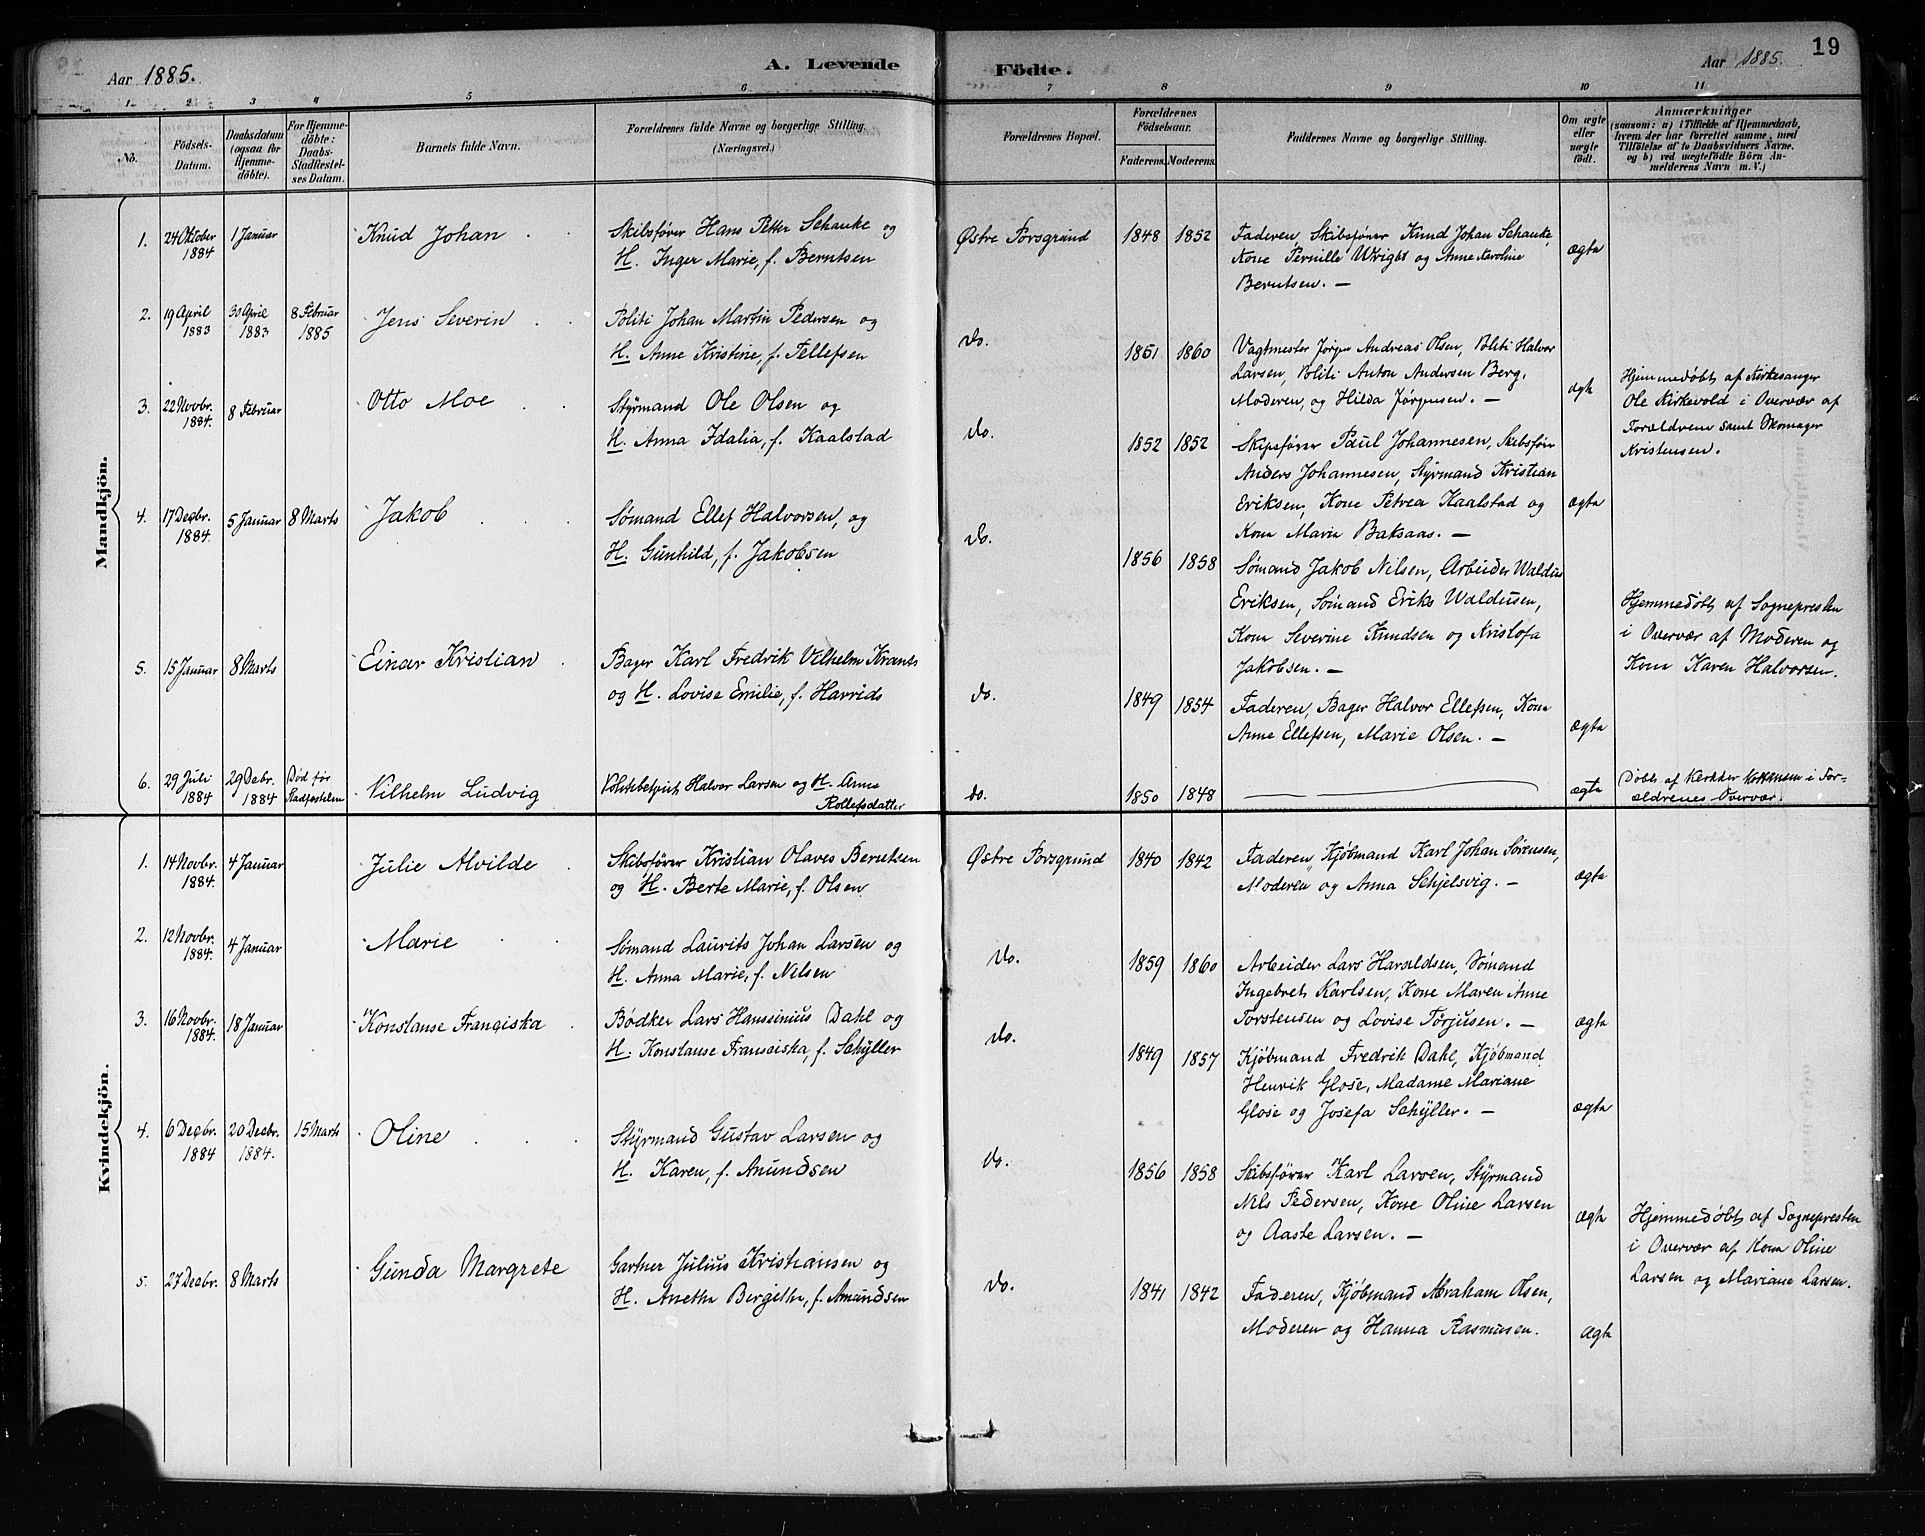 19
Aar 1885.
A. Levende
Födte.
Aar 1885.
1 2 3 4 5 6 7 8 9 10 11
No.
Födsels-
Datum.
Daabsdatum
(ogsaa for
Hjemme-
döbte).
For Hjemme-
döbte:
Daabs-
Stadfæstel-
ses Datum.
Barnets fulde Navn.
Forældrenes fulde Navne og borgerlige Stilling.
(Næringsvei.)
Forældrenes Bopæl.
Forældrenes
Födselsaar.
Faderens. Moderens.
Faddernes Navne og borgerlige Stilling.
Om ægte
eller
uægte
født.
Anmærkninger
(saasom: a) i Tilfælde af Hjemmedaab,
hvem der har forrettet samme, med
Tilföielse af to Daabsvidners Navne,
og b) ved uægtefödte Börn An-
melderens Navn m. V.)
Mandkjön.
1. 24 Oktober
1884
1 Januar
Knud Johan
Skibsfører Hans Petter Schanke og
H. Inger Marie, f. Berntsen
Østre Porsgrund
1848 1852
Faderen, Skibsfører Knud Johan Schanke,
Kone Pernille Wright og Anne Karoline
Berntsen. —
ægta
2. 19 April
1883
30 April
1883
8 Februar
1885
Jens Severin
Politi Johan Martin Pedersen og
H. Anne Kristine, f. Tellefsen
do.
1851 1860
Vagtmester Jørgen Andreas Olsen, Politi Halvor
Larsen, Politi Anton Andersen Berg,
Moderen, og Hilda Jørgensen. —
ægta
Hjemmedøbt af Kirkesanger
Ole Kirkevold i Overvær af
Forældrene samt Skomager
Kristensen.
3. 22 Novbr.
1884.
8 Februar
Otto Moe
Styrmand Ole Olsen og
H. Anna Idalia, f. Kaalstad
do.
1852 1852
Skipsfører Paul Johannesen, Skibsfører
Anders Johannesen, Styrmand Kristian
Eriksen, Kone Petrea Kaalstad og
Kone Marie Baksaas. —
ægta
4. 17 Decbr.
1884.
5 Januar
8 Marts
Jakob
Sømand Ellef Halvorsen, og
H. Gunhild, f. Jakobsen
do.
1856 1858
Sømand Jakob Nilsen, Arbeider Waldus
Eriksen, Sømand Eriks Waldusen,
Kone Severine Knudsen og Kristofa
Jakobsen. —
Hjemmedøbt af Sognepresten
i Overvær af Moderen og
Kone Karen Halvorsen.
5. 15 Januar
8 Marts
Einar Kristian
Bager Karl Fredrik Vilhelm Krants
og H. Lovise Emilie, f. Harrids
do.
1849 1854
Faderen, Bager Halvor Ellefsen, Kone
Anne Ellefsen, Marie Olsen. —
ægta
6. 29 Juli
1884
29 Debr.
1884
Død før
Stadfestelsen
Vilhelm Ludvig
Politibetjent Halvor Larsen og H. Anne
Rollefsdatter
do.
1850 1848
ægta
Døbt af i For-
ældrenes Overvær.
Kvindekjön.
1. 14 Novbr.
1884.
4 Januar
Julie Alvilde
Skibsfører Kristian Olaves Berntsen
og H. Berte Marie, f. Olsen
Østre Porsgrund
1840 1842
Faderen, Kjøbmand Karl Johan Sørensen,
Moderen og Anna Schjelsvig. —
ægta
2. 12 Novbr.
1884.
4 Januar
Marie
Sømand Laurits Johan Larsen og
H. Anna Marie, f. Nilsen
do.
1859 1860
Arbeider Lars Haraldsen, Sømand
Ingebret Karlsen, Kone Maren Anne
Torstensen og Lovise Torjusen. —
ægta
3. 16 Novbr.
1884.
18 Januar
Konstanse Frangiska
Bødker Lars Hanssinius Dahl og
H. Konstanse Franciska, f. Schyller
do.
1849 1857
Kjøbmand Fredrik Dahl, Kjøbmand
Henrik Glose, Madame Mariane
Glose og Josefa Schyller. —
ægta
4. 6 Decbr.
1884
20 Decbr.
1884.
15 Marts
Oline
Styrmand Gustav Larsen og
H. Karen, f. Anundsen
do.
1856 1858
Skibsfører Karl Larsen, Styrmand
Nils Pedersen, Kone Oline Larsen
og Aaste Larsen. —
ægta
Hjemmedøbt af Sognepresten
i Overvær af Kone Oline
Larsen og Mariane Larsen.
5. 27 Decbr.
8 Marts
Gunda Margrete
Gartner Julius Kristiansen og
H. Anetha Bergitha, f. Amundsen
do.
1841 1842
Faderen, Kjøbmand Abraham Olsen,
Moderen og Hanna Rasmusen.
ægta